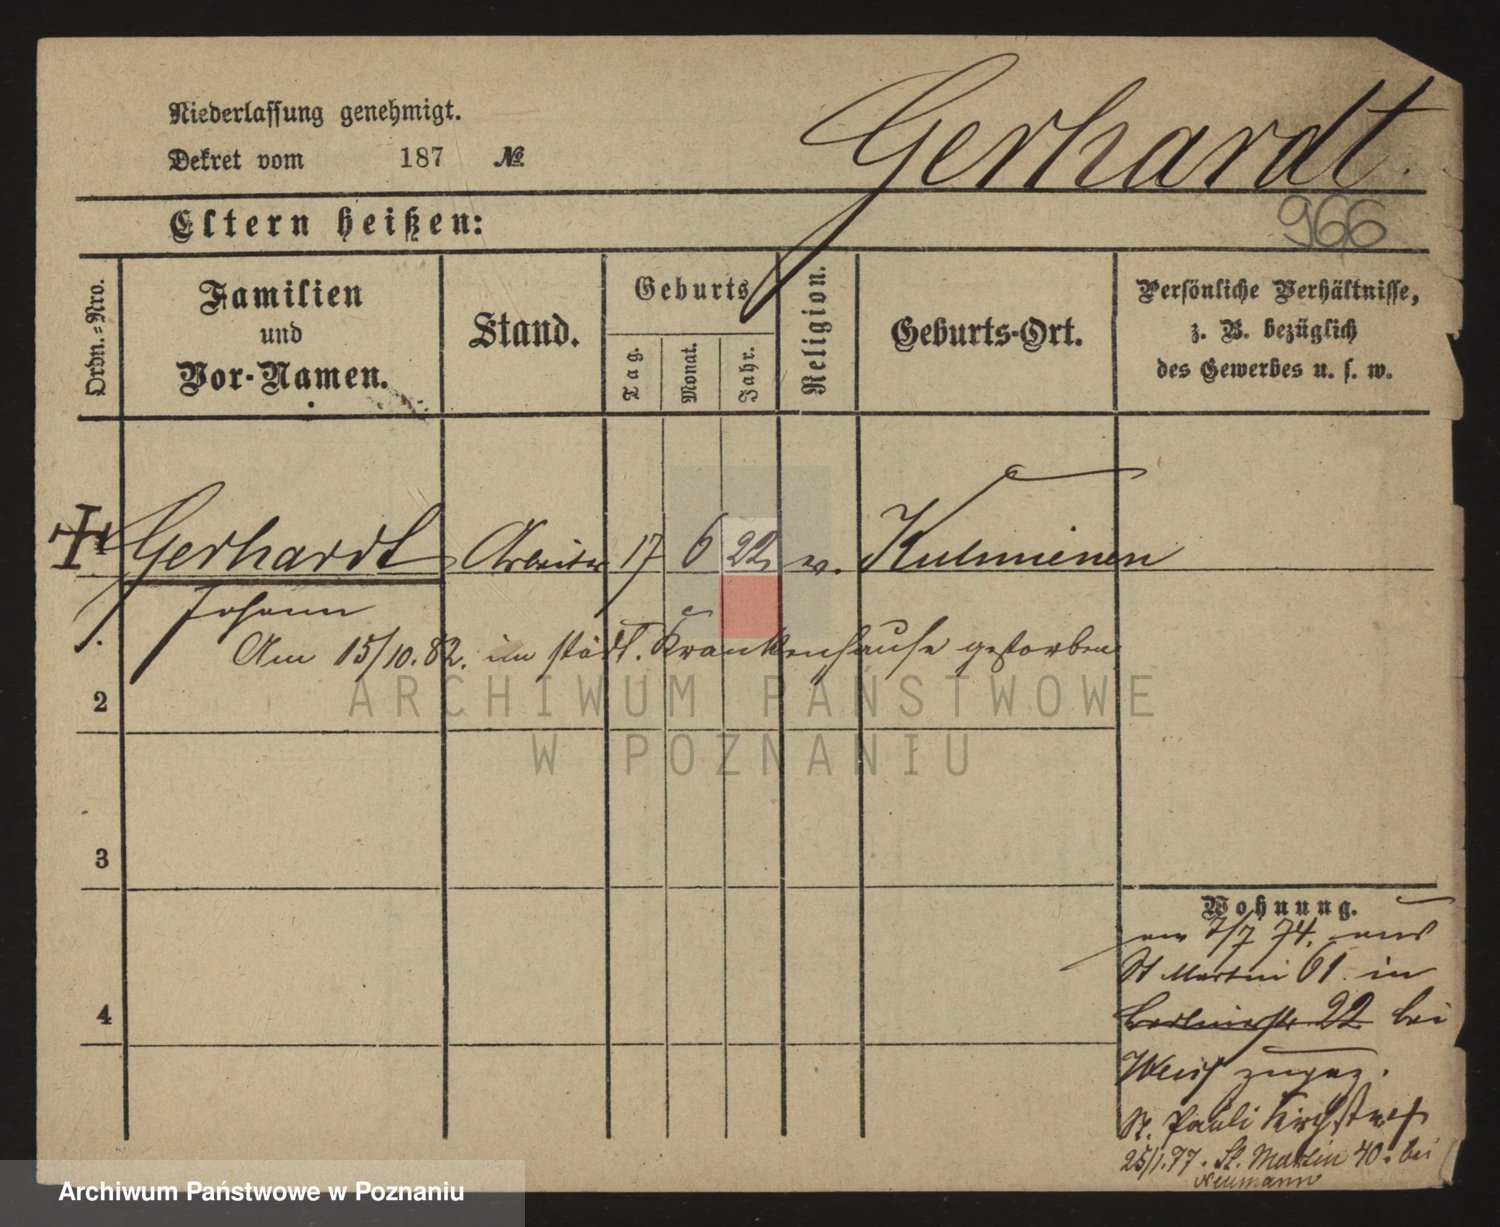 Gerhardt.
Niederlassung genehmigt.
Dekret vom 187 №
966
Eltern heißen:
Ordn.=Nro.
Familien
und
Vor-Namen.
Stand.
Geburts
Tag.
Monat.
Jahr.
Religion.
Geburts-Ort.
Persönliche Verhältnisse,
z. B. bezüglich
des Gewerbes u. s. w.
Gerhardt Arbeiter 17 6 22
Johann
1.
Am 15/10.82. im städt. Krankenhause gestorben
2
3
4
Wohnung.
am 7/7 74. aus
St Martin 61. in
22 bei
Weiß zugez.
St. Pauli
25/1.77. St. Martin 40. bei
Neumann
ARCHIWUM PAŃSTWOWE
W POZNANIU
Archiwum Państwowe w Poznaniu